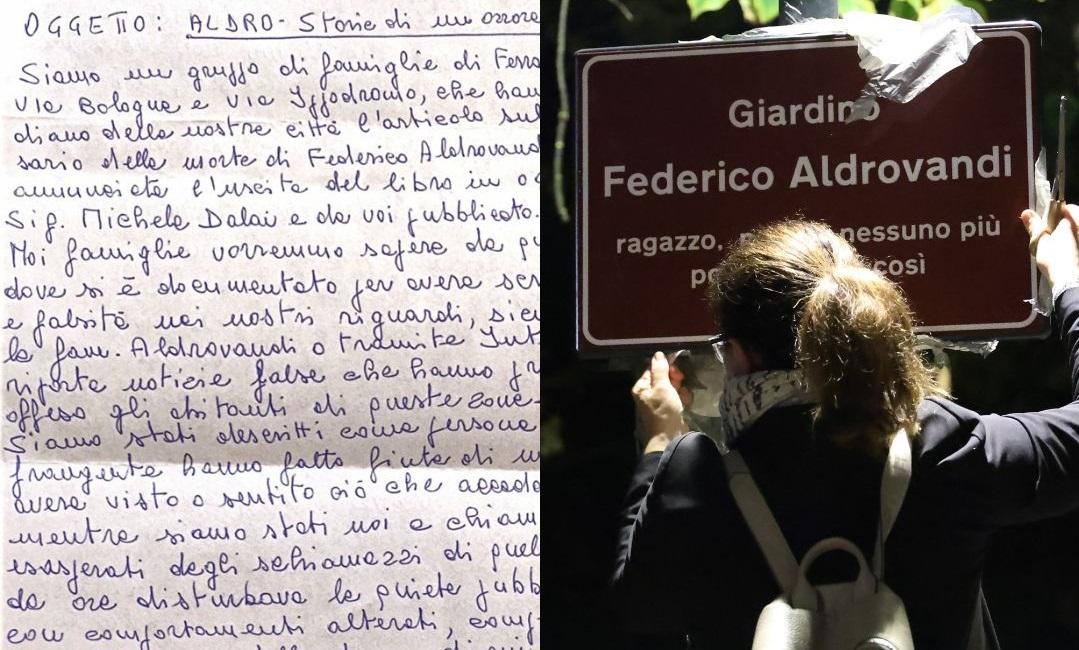 OGGETTO: ALDRO - Storie di un orrore
Siamo un gruppo di famiglie di Ferra
Via Bologna e Via Ippodromo, che han
diano della nostra città l'articolo sul
sario della morte di Federico Aldrovand
annunciata l'uscita del libro in
Sig. Michele Dalai e da voi pubblicato.
Noi famiglie vorremmo sapere da
dove si è documentato per avere
e falsità nei nostri riguardi, sie
la fam. Aldrovandi o tramite Int
riporta notizie false che hanno
offeso gli abitanti di queste zone
Siamo stati descritti come persone
frangente hanno fatto finta di
avere visto o sentito ciò che accade
mentre siamo stati noi a chiam
esasperati dagli schiamazzi di quel
da ore disturbava la quiete pubb
con comportamenti alterati,
Giardino
Federico Aldrovandi
ragazzo, nessuno più
così